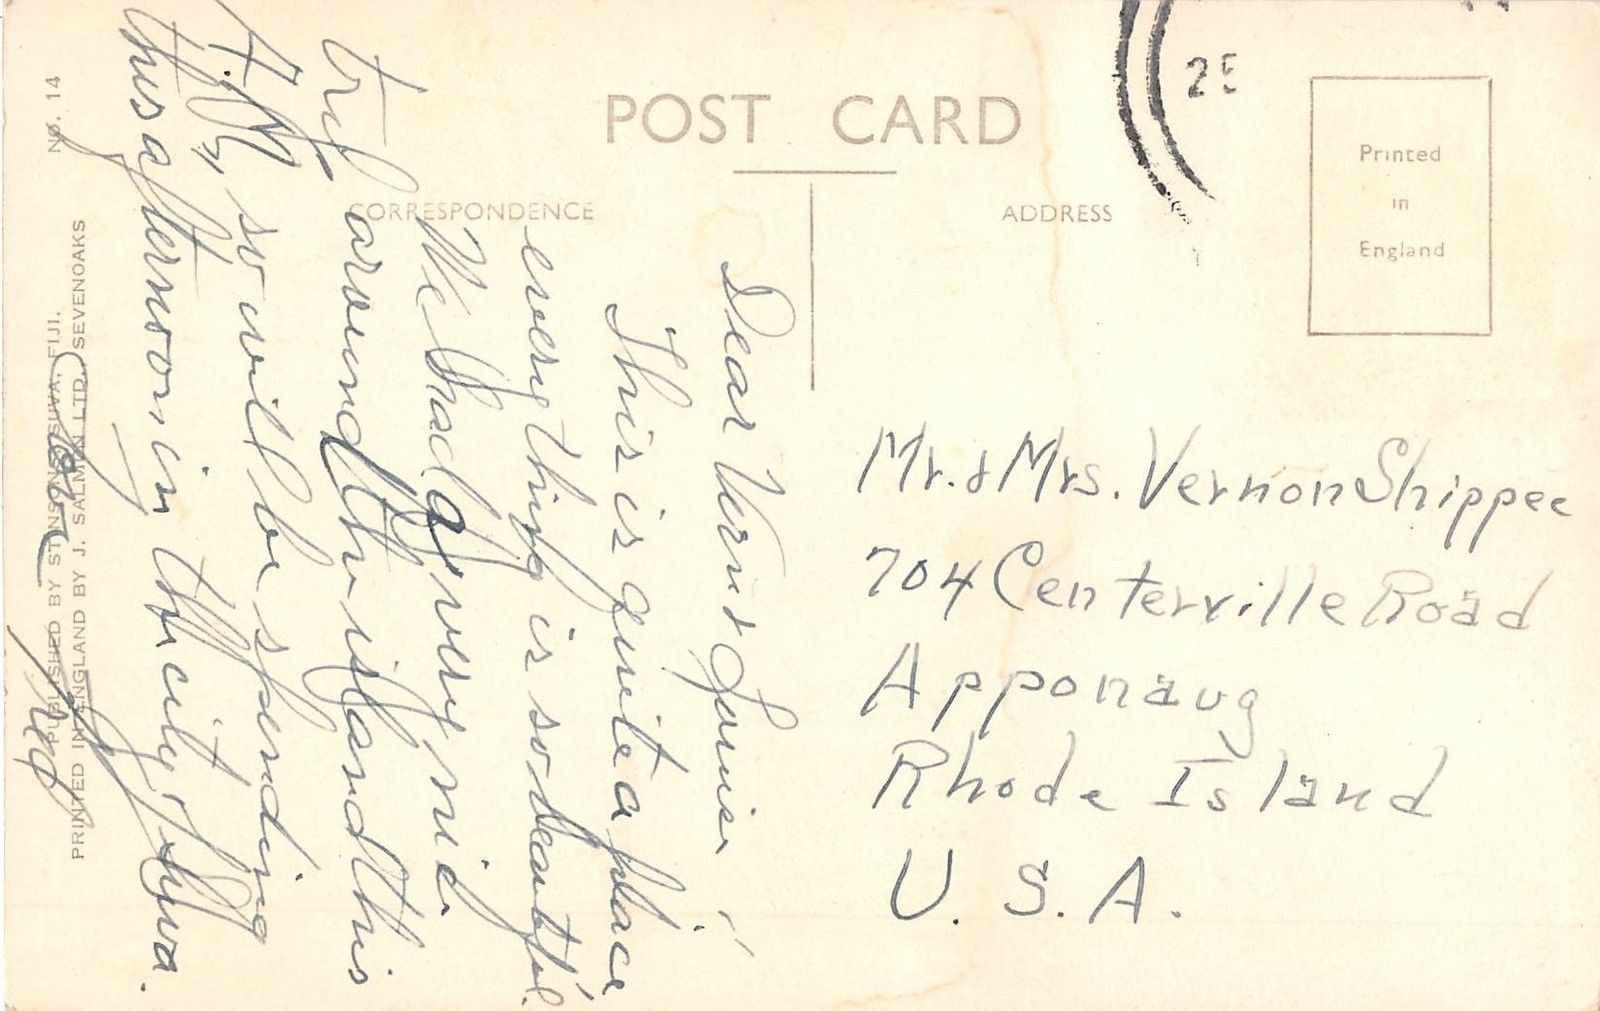 POST CARD
CORRESPONDENCE
ADDRESS
25
Printed
in
England
Dear Vern & Louise;
This is quite a place
everything is so beautiful.
We had a very nice
trip around the island this
A.M., so will be spending
this afternoon in the city of Suva.
Mr. & Mrs. Vernon Shippee
704 Centerville Road
Apponaug
Rhode Island
U. S. A.
PUBLISHED BY STINSONS, SUVA, FIJI. NO. 14
PRINTED IN ENGLAND BY J. SALMON LTD. SEVENOAKS